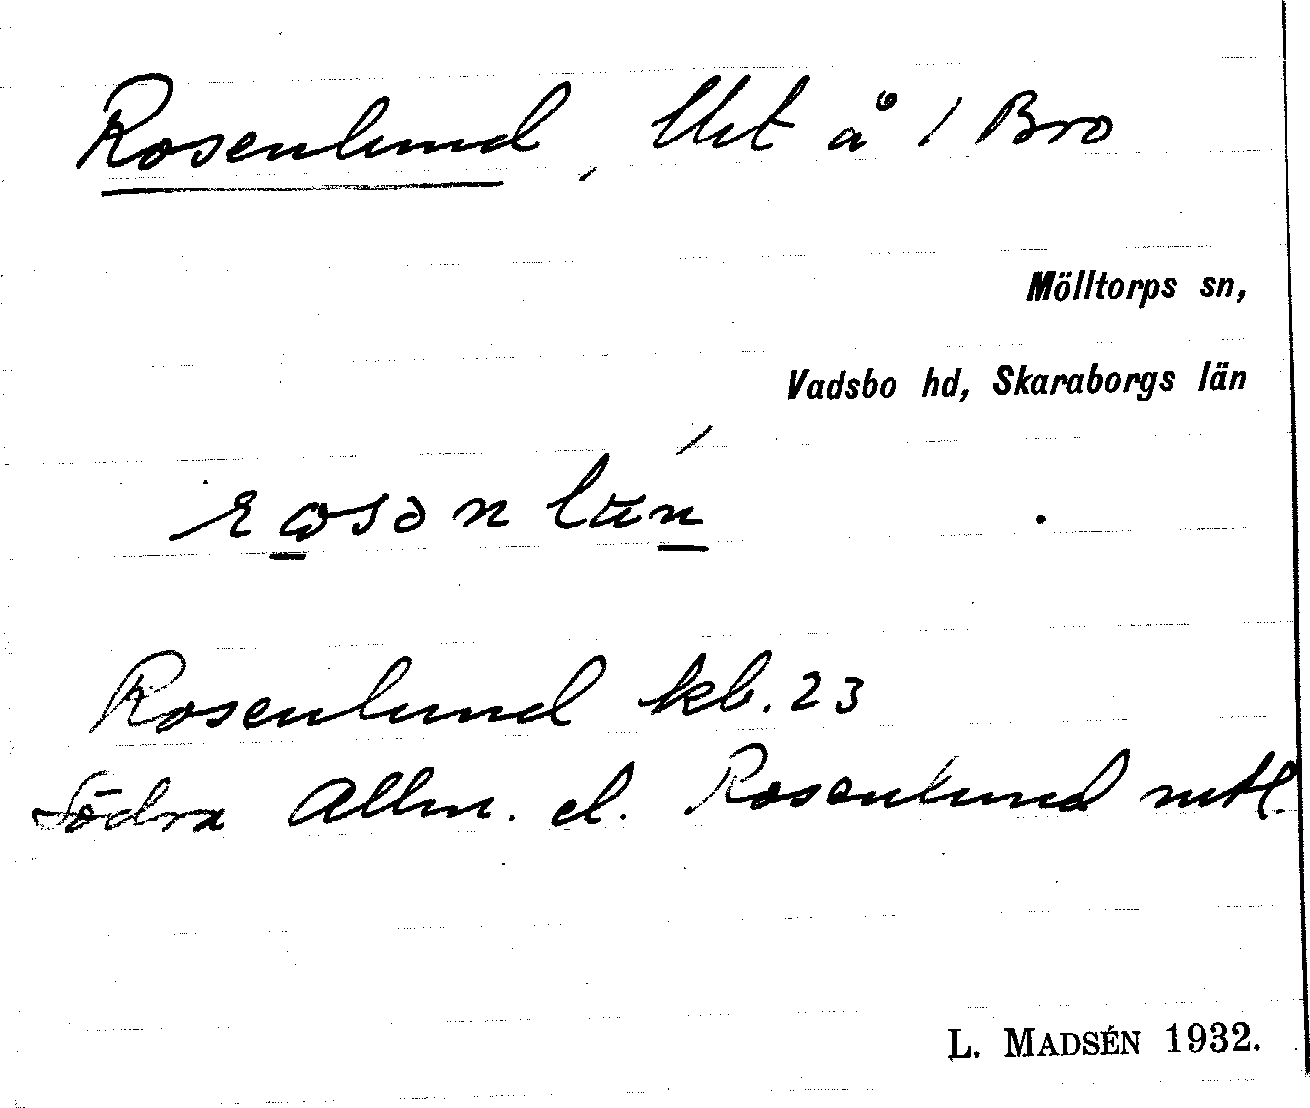 Rosenlund, lht å 1 Bro
Mölltorps sn,
Vadsbo hd, Skaraborgs län
Rosenlund kb. 23
Södra Allm. el. Rosenlund mtl.
L. MADSÉN 1932.